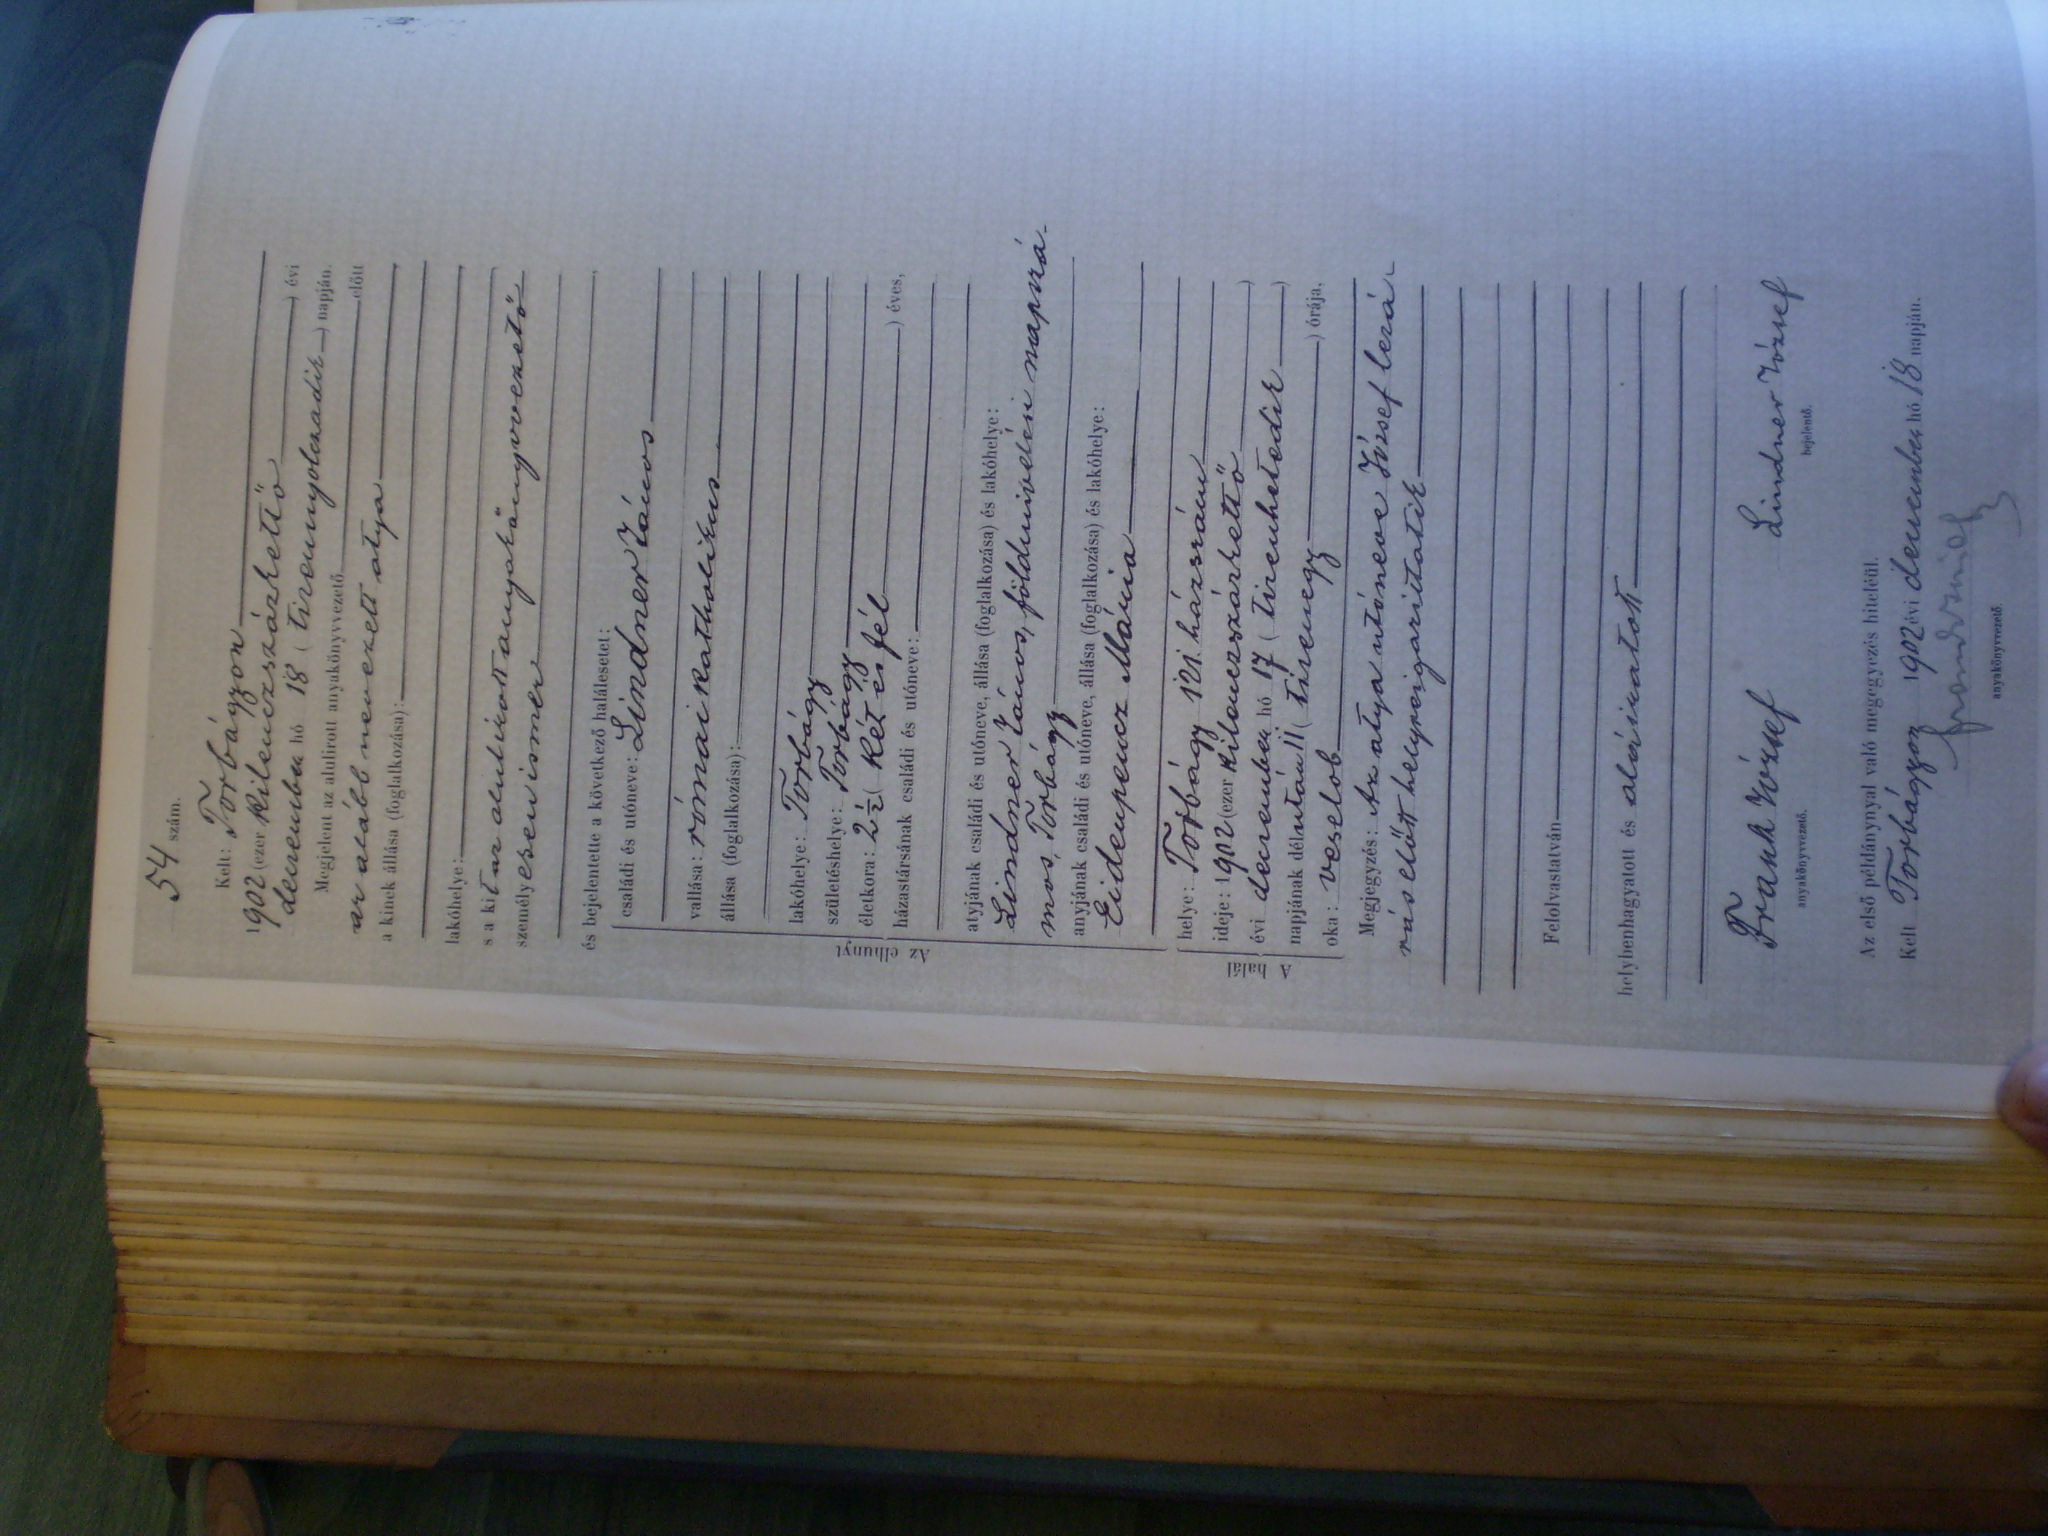 54 szám.
Kelt: Torbágyon
1902 (ezer kilenczszázkettő ) évi
december hó 18 ( tizennyolczadik ) napján.
Megjelent az alulirott anyakönyvvezető előtt
az alább nevezett atya
a kinek állása (foglalkozása):
lakóhelye:
s a kit az alulirott anyakönyvvezető
személyesen ismer
és bejelentette a következő halálesetet:
Az elhunyt
családi és utóneve: Lindner János
vallása: római katholikus
állása (foglalkozása):
lakóhelye: Torbágy
születéshelye: Torbágy
életkora: 2½ ( két és fél ) éves,
házastársának családi és utóneve:
atyjának családi és utóneve, állása (foglalkozása) és lakóhelye:
Lindner János, földmivelési napszá-
mos, Torbágy
anyjának családi és utóneve, állása (foglalkozása) és lakóhelye:
Eidenpencz Mária
A halál
helye: Torbágy 121. házszám
ideje: 1902 (ezer kilenczszázkettő )
évi december hó 17 ( tizenhetedik )
napjának délután 11 ( tizenegy ) órája,
oka: veselob
Megjegyzés: Az atya utóneve József lezá
rás előtt helyreigazittatik
Felolvastatván
helybenhagyatott és aláiratott
Frank József
Lindner József
anyakönyvvezető.
bejelentő.
Az első példánynyal való megegyezés hiteléül.
Kelt Torbágyon 1902 évi december hó 18 napján.
anyakönyvvezető.